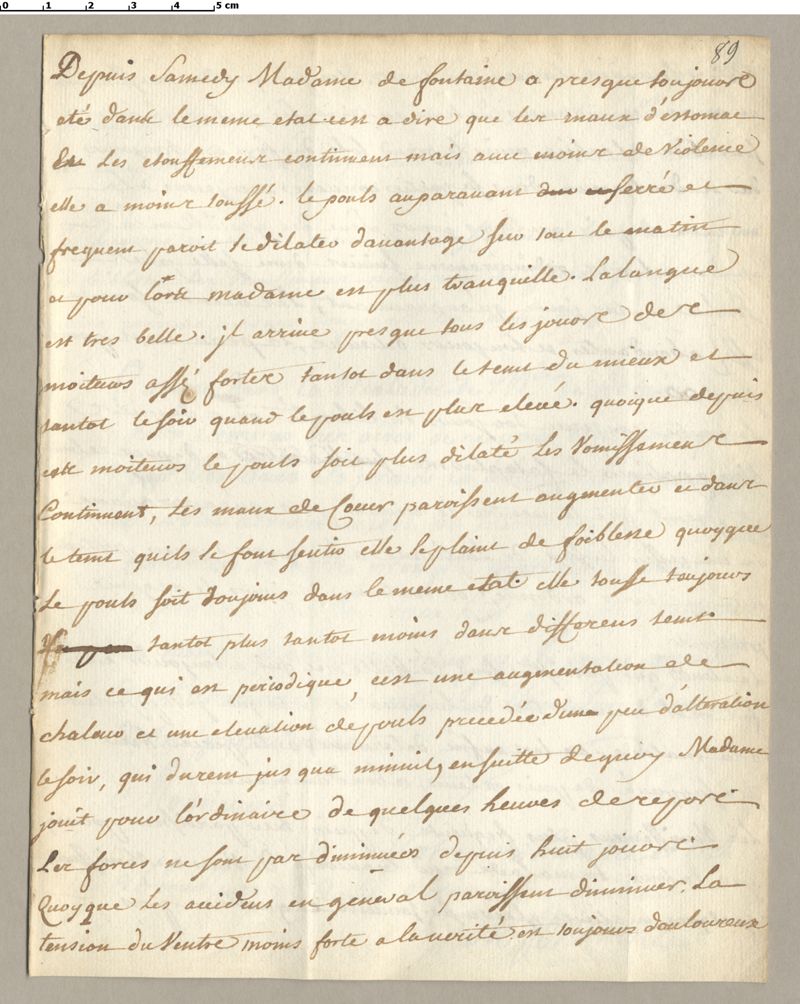 0 1 2 3 4 5 cm
89
Depuis Samedy Madame de fontaine a presque toujours
eté dans le meme etat cest a dire que les maux d'estomac
Et Les etouffemens continuent mais avec moins de Violence
elle a moins toussé. le pouls auparavant serré et
frequent paroit se dilater davantage sur tout le matin
et pour lors madame est plus tranquille. La langue
est tres belle. jl arrive presque tous les jours de
moiteurs assé fortes tantot dans le tems du mieux et
tantot le soir quand le pouls est plus elevé. quoique depuis
ces moiteurs le pouls soit plus dilaté Les Vomissemens
Continuent, Les maux de Coeur paroissent augmenter et dans
le tems quils se font sentir elle se plaint de foiblesse quoyque
Le pouls soit toujours dans le meme etat. elle tousse toujours
tantot plus tantot moins dans differens tems.
mais ce qui est periodique, cest une augmentation de
chaleur et une elevation de pouls precedée d'un peu d'alteration
le soir, qui durent jusqua minuit, ensuitte dequoy Madame
jouit pour l'ordinaire de quelques heures de repos.
Les forces ne sont pas diminuées depuis huit jours.
Quoyque Les accidens en general paroissent diminuer. La
tension du Ventre moins forte a la verité est toujours douloureux